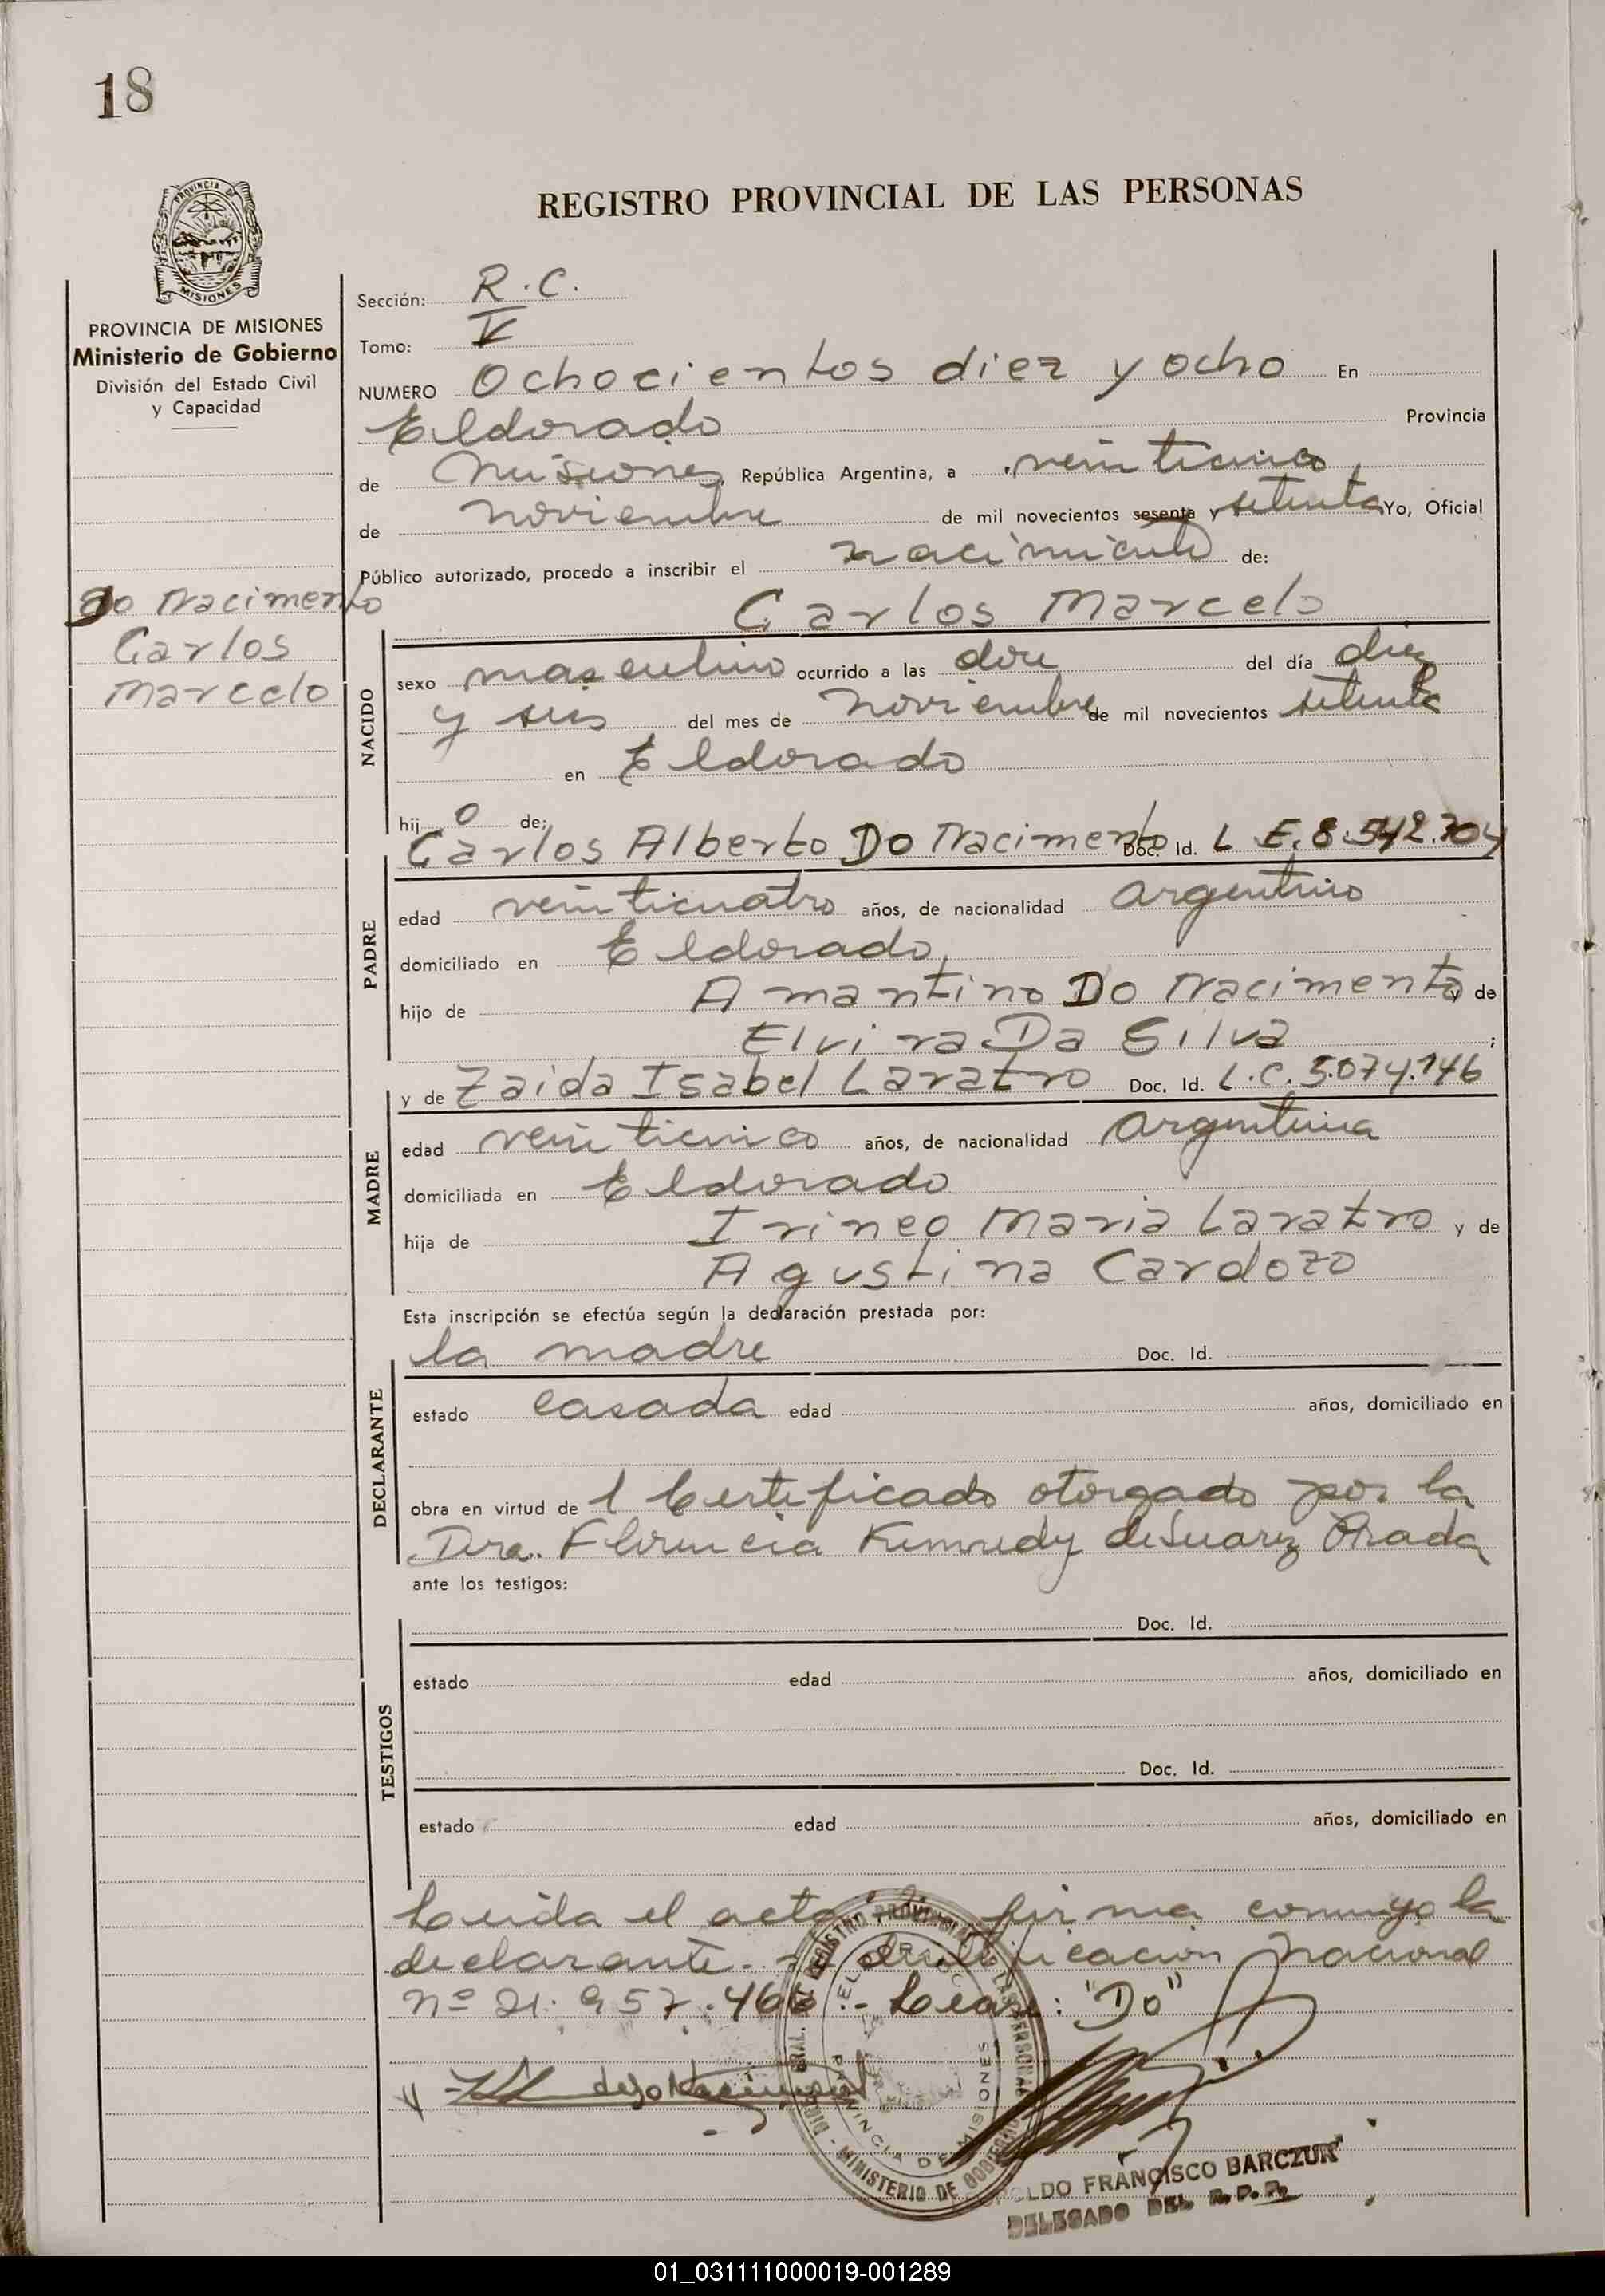 18
REGISTRO PROVINCIAL DE LAS PERSONAS
PROVINCIA DE MISIONES
Ministerio de Gobierno
División del Estado Civil
y Capacidad
Sección: R.C.
Tomo: V
NUMERO Ochocientos diez y ocho En
Eldorado Provincia
de Misiones, República Argentina, a veinticinco
de noviembre de mil novecientos sesenta y setenta Yo, Oficial
Público autorizado, procedo a inscribir el nacimiento de:
Do Nacimento
Carlos
Marcelo
Carlos Marcelo
NACIDO
sexo masculino ocurrido a las doce del día diez
y seis del mes de noviembre de mil novecientos setenta
en Eldorado
hijo de:
Carlos Alberto Do Nacimento Doc. Id. L E. 8.542.704
PADRE
edad veinticuatro años, de nacionalidad argentino
domiciliado en Eldorado,
hijo de Amantino Do Nacimento y de
Elvira Da Silva ;
y de Zaida Isabel Laratro Doc. Id. L.C. 5.074.146
MADRE
edad veinticinco años, de nacionalidad argentina
domiciliada en Eldorado
hija de Irineo Maria Laratro y de
Agustina Cardozo
Esta inscripción se efectúa según la declaración prestada por:
la madre Doc. Id.
DECLARANTE
estado casada edad años, domiciliado en
obra en virtud de l Certificado otorgado por la
Dra. Florencia Kennedy de Suarez Prada
ante los testigos:
Doc. Id.
TESTIGOS
estado edad años, domiciliado en
Doc. Id.
estado edad años, domiciliado en
Leida el acta firma conmigo la
declarante.- Identificacion Nacional
nº 21.957.466.- Lease: "Do"
PROVINCIA DE MISIONES
MINISTERIO DE GOBIERNO
OLDO FRANCISCO BARCZUK
DELEGADO DEL R.P.P.
01_031111000019-001289